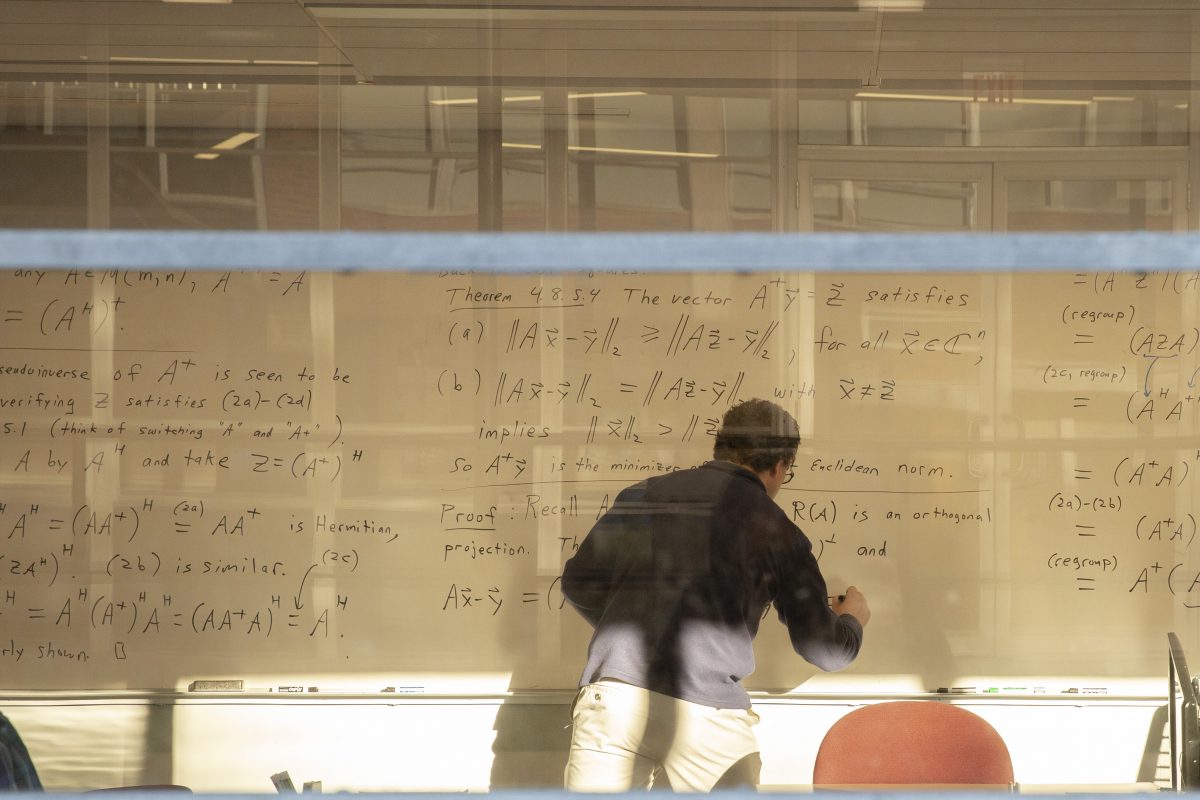 EXIT
any A ∈ M(m,n), A = A
= (A^H)^†.
of A^+ is seen to be
verifying Z satisfies (2a)-(2d)
5.1 (think of switching "A" and "A+").
A by A^H and take Z=(A^+)^H
A^H = (AA^+)^H (2a) = AA^+ is Hermitian,
(ZA^H)^H. (2b) is similar. (2c)
^H = A^H(A^+)^H A^H = (AA^+A)^H = A^H.
shown. □
Theorem 4.8.5.4 The vector A^+y⃗ = z⃗ satisfies
(a) ‖Ax⃗-y⃗‖_2 ≥ ‖Az⃗-y⃗‖_2, for all x⃗ ∈ ℂ^n,
(b) ‖Ax⃗-y⃗‖_2 = ‖Az⃗-y⃗‖_2 with x⃗ ≠ z⃗
implies ‖x⃗‖_2 > ‖z⃗
So A^+y⃗ is the minimizer Euclidean norm.
Proof: Recall A R(A) is an orthogonal
projection. )^⊥ and
Ax⃗-y⃗ = (
(regroup)
= (AZA)
(2c, regroup)
= (A^H A^+
= (A^+A)^H
(2a)-(2b)
= (A^+A)
(regroup)
= A^+(